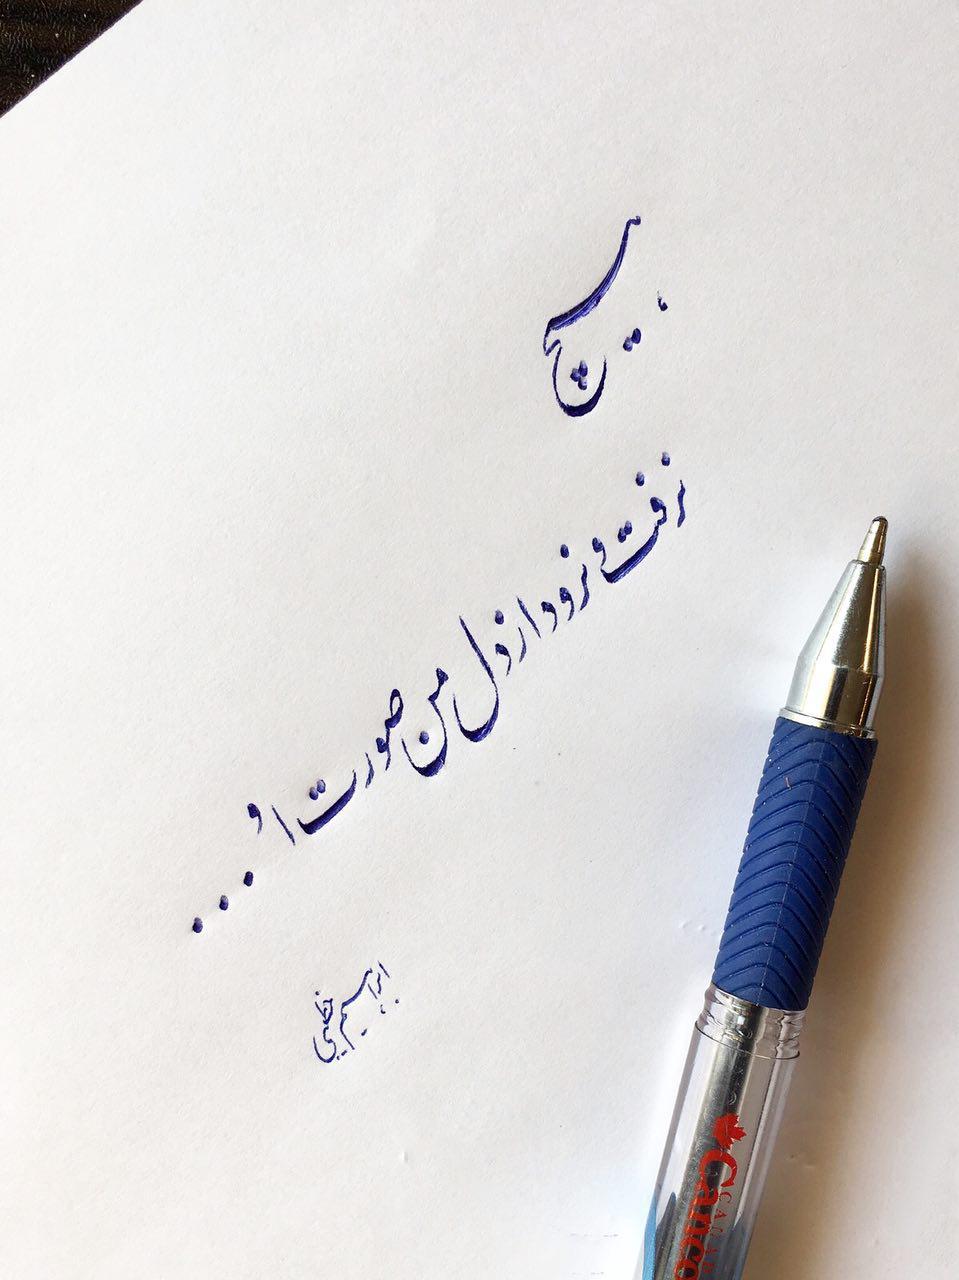 هیچ
نرفت و نرود از دل من صورت او...
ابراهیم خطیبی
Canco
CANADA